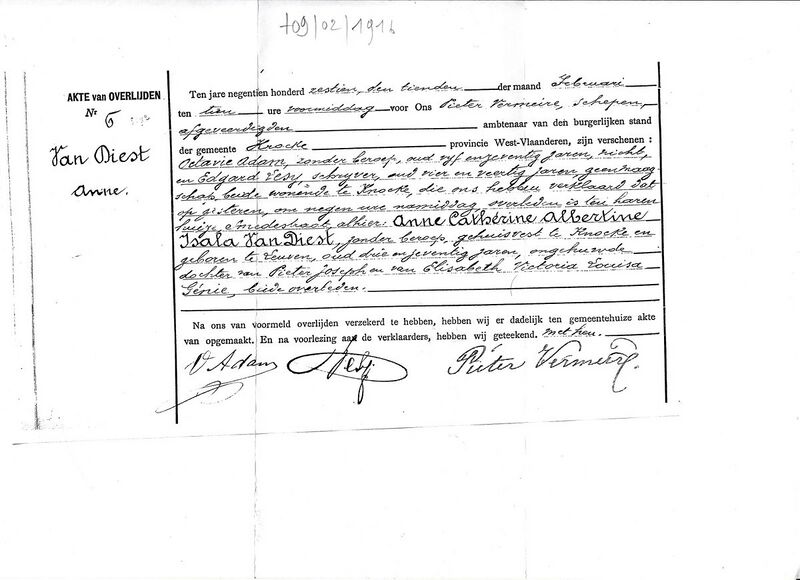 †09/02/1916
AKTE van OVERLIJDEN
Nr 6
Van Diest
Anne.
Ten jare negentien honderd zestien, den tienden der maand Februari
ten tien ure voormiddag voor Ons Pieter Vermeire, Schepen,
afgeveerdigden ambtenaar van den burgerlijken stand
der gemeente Knocke provincie West-Vlaanderen, zijn verschenen :
Octavie Adam, zonder beroep, oud vyf en zeventig jaren, nicht,
en Edgard Desy, schryver, oud vier en veertig jaren, geen maag-
schap, beide wonende te Knocke, die ons hebben verklaard dat
op gisteren, om negen ure namiddag, overleden is ten haren
huize, alhier: Anne Cathérine Albertine
Isala Van Diest, zonder beroep, gehuisvest te Knocke en
geboren te Leuven, oud drie en zeventig jaren, ongehuwde
dochter van Pieter Joseph en van Elisabeth Victoria Louisa
Génie, beide overleden.
Na ons van voormeld overlijden verzekerd te hebben, hebben wij er dadelijk ten gemeentehuize akte
van opgemaakt. En na voorlezing aan de verklaarders, hebben wij geteekend. met hen.
V Adam Desy Pieter Vermeire